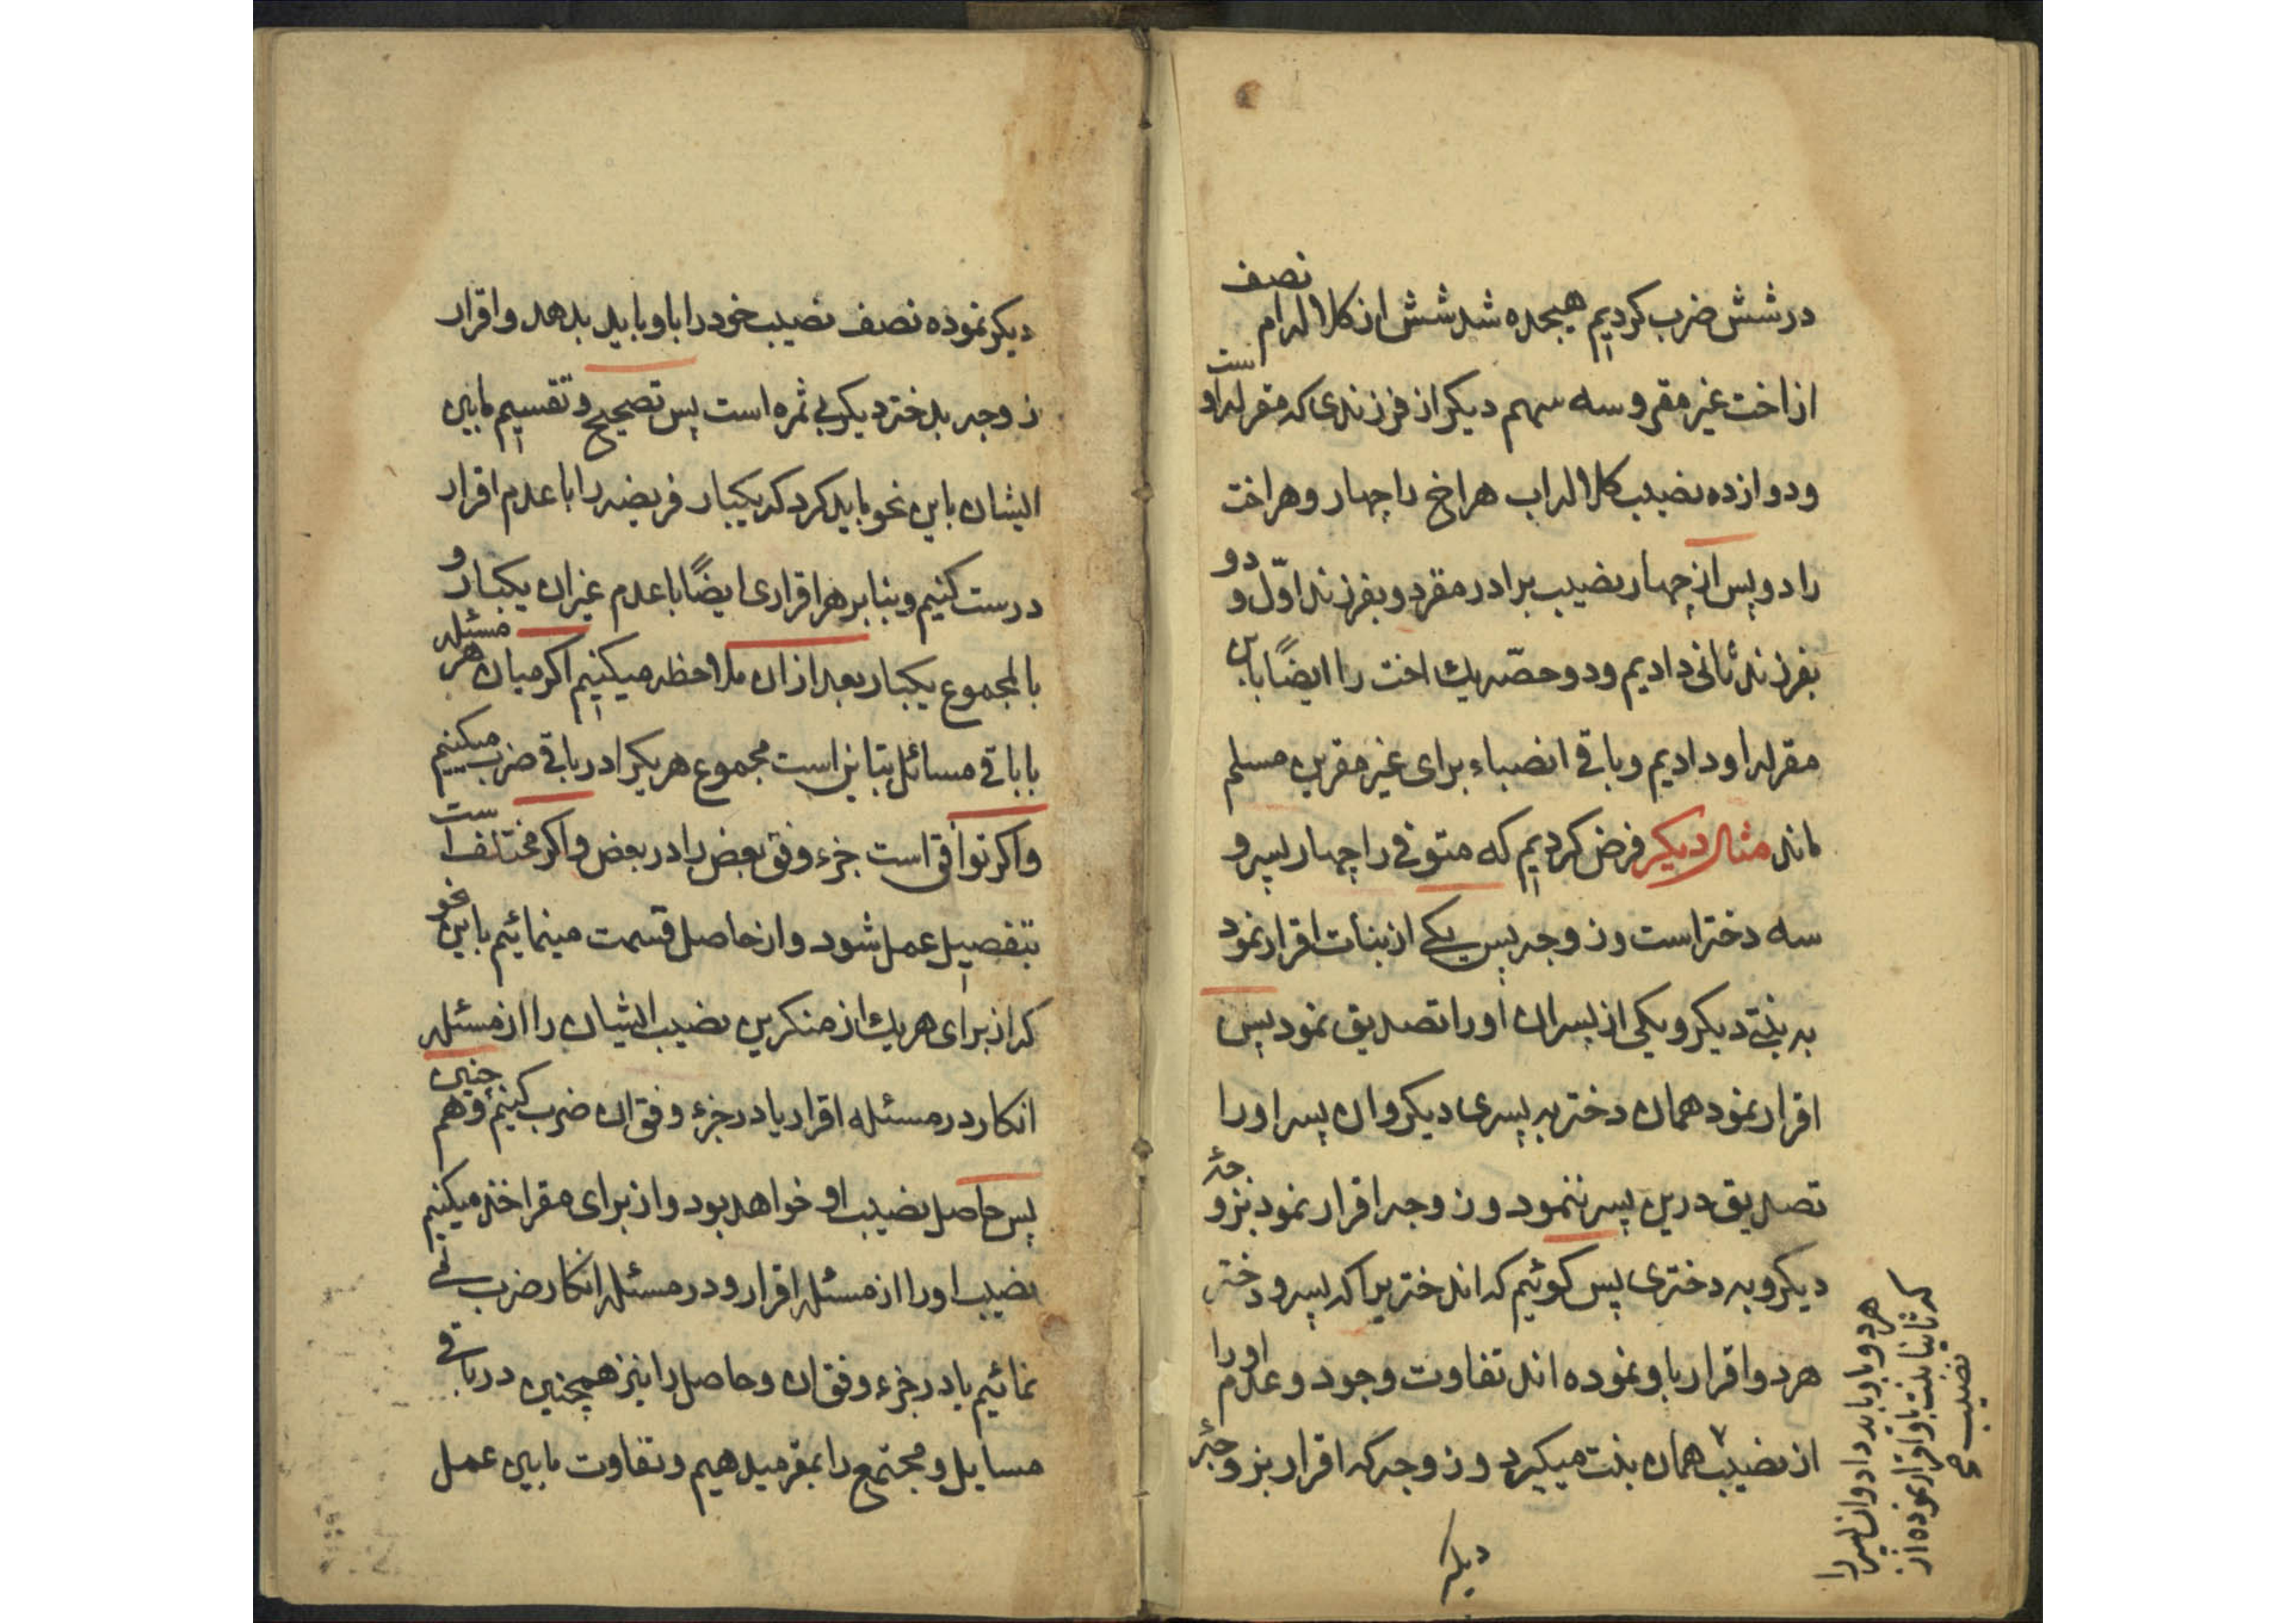 در شش ضرب کردیم هیجده شد شش از کلالهٔ ام نصف
از اخت غیر مقر و سه سهم دیکر از فرزندی که مقر له اوست
و دوازده نصیب کلالهٔ اب هر اخ را چهار و هر اخت
را دو پس از چهار نصیب برادر مقر دو بفرزند اوّل و دو
بفرزند ثانی دادیم و دو حصّه یك اخت را ایضًا باین
مقر له او دادیم و باقی انصباء برای غیر مقرین مسلم
ماند مثال دیکر فرض کردیم که متوفی را چهار پسر و
سه دختر است و زوجه پس یکی از بنات اقرار نمود
به بنتی دیکر و یکی از پسران او را تصدیق نمود پس
اقرار نمود همان دختر به پسری دیکر و ان پسر او را
تصدیق درین پسر ننمود و زوجه اقرار نمود بزوجهٔ
دیکر و به دختری پس کوئیم که اند ختریرا که پسر و دختر
هر دو اقرار باو نموده اند تفاوت وجود و عدم او را
از نصیب همان بنت میکیرد و زوجه که اقرار بزوجهٔ
هر دو باو باید داد و ان پسر را
که ثانیا بنت باو اقرار نموده از
نصیب
دیکر
دیکر نموده نصف نصیب خود را باو باید بدهد و اقرار
زوجه بدختر دیکر بی ثمره است پس تصحیح و تقسیم مابین
ایشان باین نحو باید کرد که یکبار فریضه را با عدم اقرار
درست کنیم و بنا بر هر اقراری ایضًا با عدم غیر ان یکبار و
بالمجموع یکبار بعد از ان ملاحظه میکنیم اکر میان هر مسئله
با باقی مسائل تباین است مجموع هر یکرا در باقی ضرب میکنیم
و اکر توافق است جزء وفق بعض را در بعض و اکر مختلف است
بتفصیل عمل شود و از حاصل قسمت مینمائیم باین نحو
که از برای هر یك از منکرین نصیب ایشان را از مسئله
انکار در مسئله اقرار یا در جزء وفق ان ضرب کنیم و هم چنین
پس حاصل نصیب او خواهد بود و از برای مقر اخذ میکنیم
نصیب او را از مسئله اقرار و در مسئله انکار ضرب می
نمائیم یا در جزء وفق ان و حاصل را نیز همچنین در باقی
مسایل و مجتمع را بمقر میدهیم و تفاوت مابین عمل